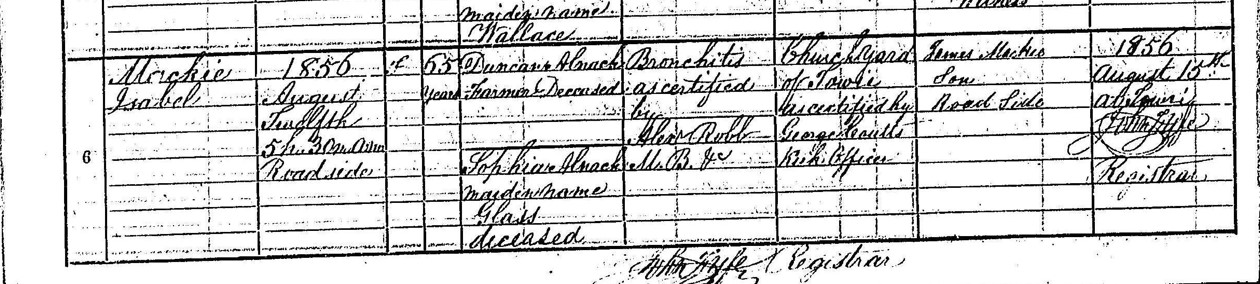 maiden name
Wallace
6
Mackie
Isabel
1856
August
Twelfth
5h. 30m. A.M.
Road side
f
65
Years
Duncan
Farmer Deceased
Sophia
maiden name
Glass
deceased
Bronchitis
as certified
by
Alexr Robb
M. B. &c
Churchyard
of Towie
as certified by
George Coutts
Kirk Officer
James Mackie
Son
Road Side
1856
August 15th
at Towie
John Fyfe
Registrar
John Fyfe Registrar